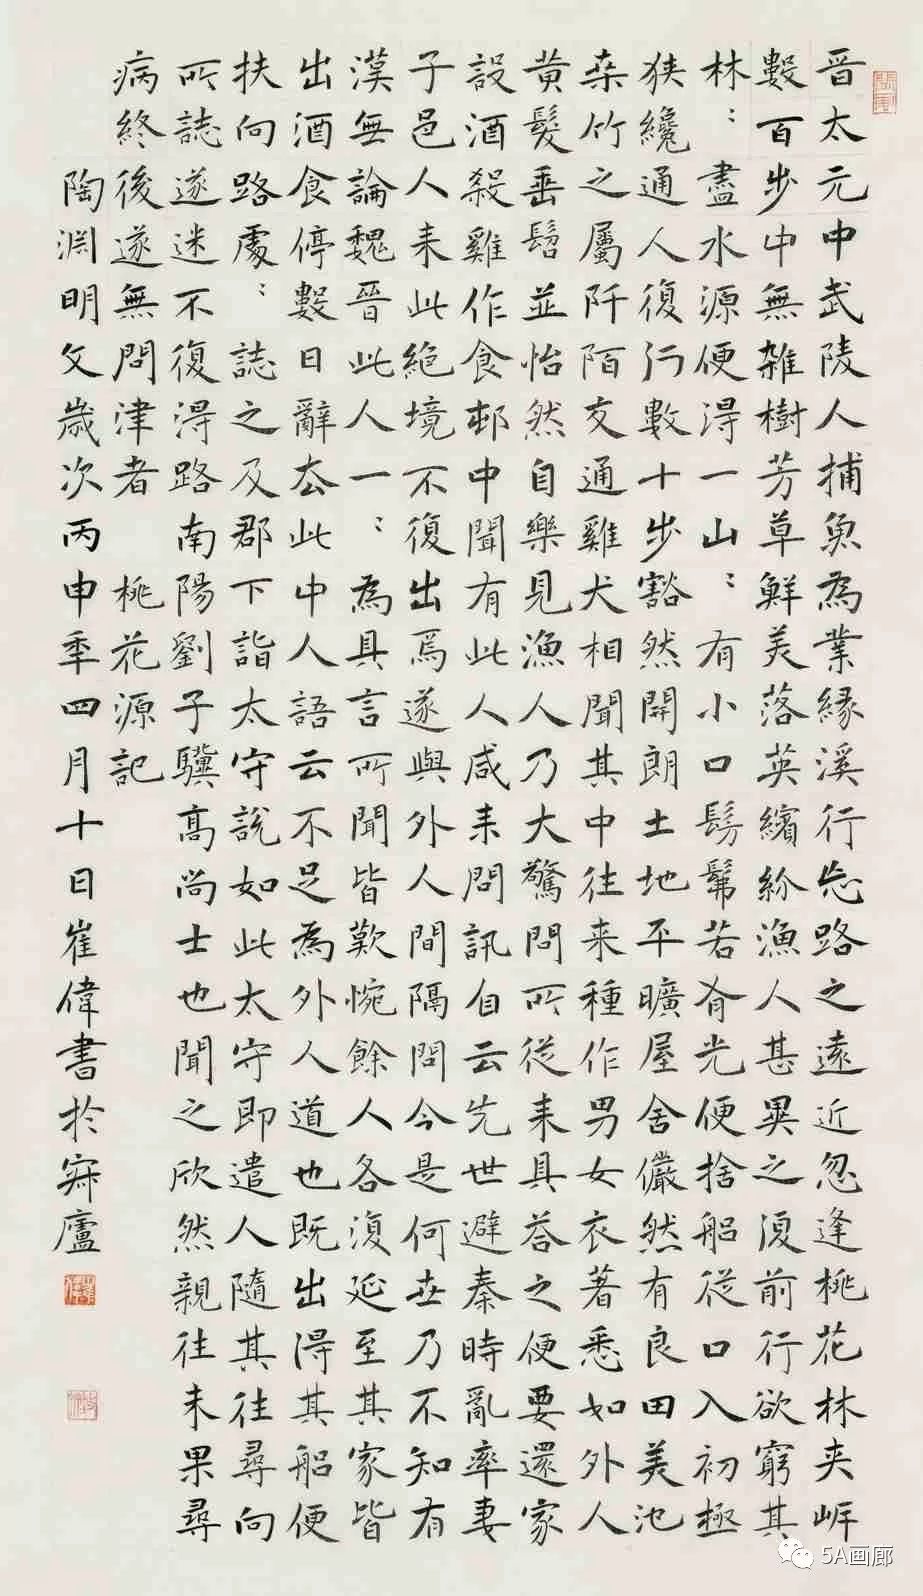 晉太元中武陵人捕魚為業緣溪行忘路之遠近忽逢桃花林夾岸
數百步中無雜樹芳草鮮美落英繽紛漁人甚異之復前行欲窮其
林：盡水源便得一山：有小口髣髴若有光便捨船從口入初極
狹纔通人復行數十步豁然開朗土地平曠屋舍儼然有良田美池
桑竹之屬阡陌交通雞犬相聞其中往來種作男女衣著悉如外人
黃髮垂髫並怡然自樂見漁人乃大驚問所從來具答之便要還家
設酒殺雞作食邨中聞有此人咸來問訊自云先世避秦時亂率妻
子邑人來此絕境不復出焉遂與外人間隔問今是何世乃不知有
漢無論魏晉此人一：為具言所聞皆歎惋餘人各復延至其家皆
出酒食停數日辭去此中人語云不足為外人道也既出得其船便
扶向路處：誌之及郡下詣太守說如此太守即遣人隨其往尋向
所誌遂迷不復得路南陽劉子驥高尚士也聞之欣然親往未果尋
病終後遂無問津者 桃花源記
陶淵明文歲次丙申年四月十日崔偉書於廬
5A画廊